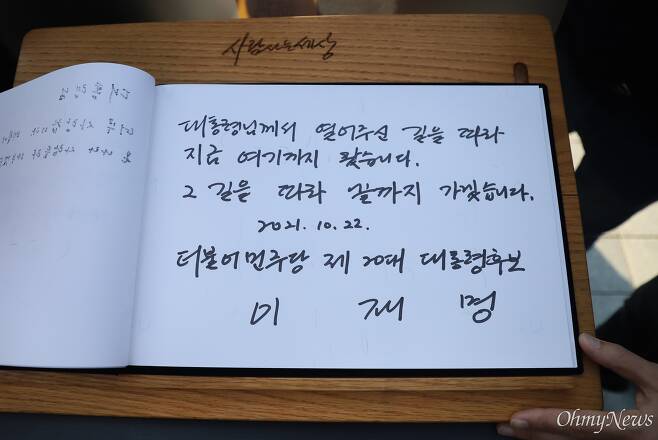 사람사는세상
대통령님께서 열어주신 길을 따라
지금 여기까지 왔습니다.
그 길을 따라 끝까지 가겠습니다.
2021. 10. 22.
더불어민주당 제 20대 대통령후보
이 재 명
OhmyNews